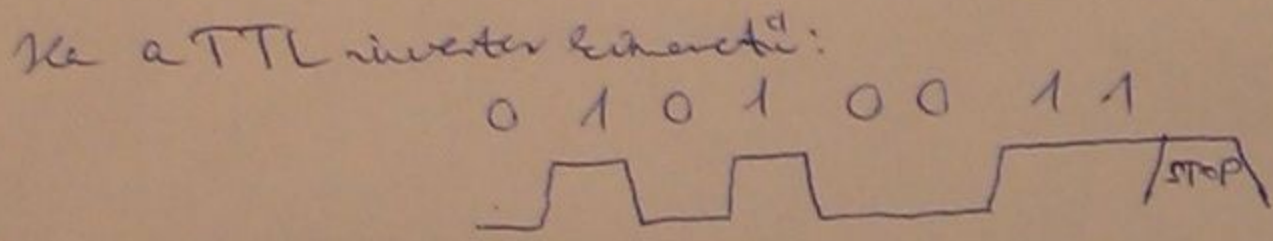 Ha a TTL inverter kimenetű:
0 1 0 1 0 0 1 1
STOP